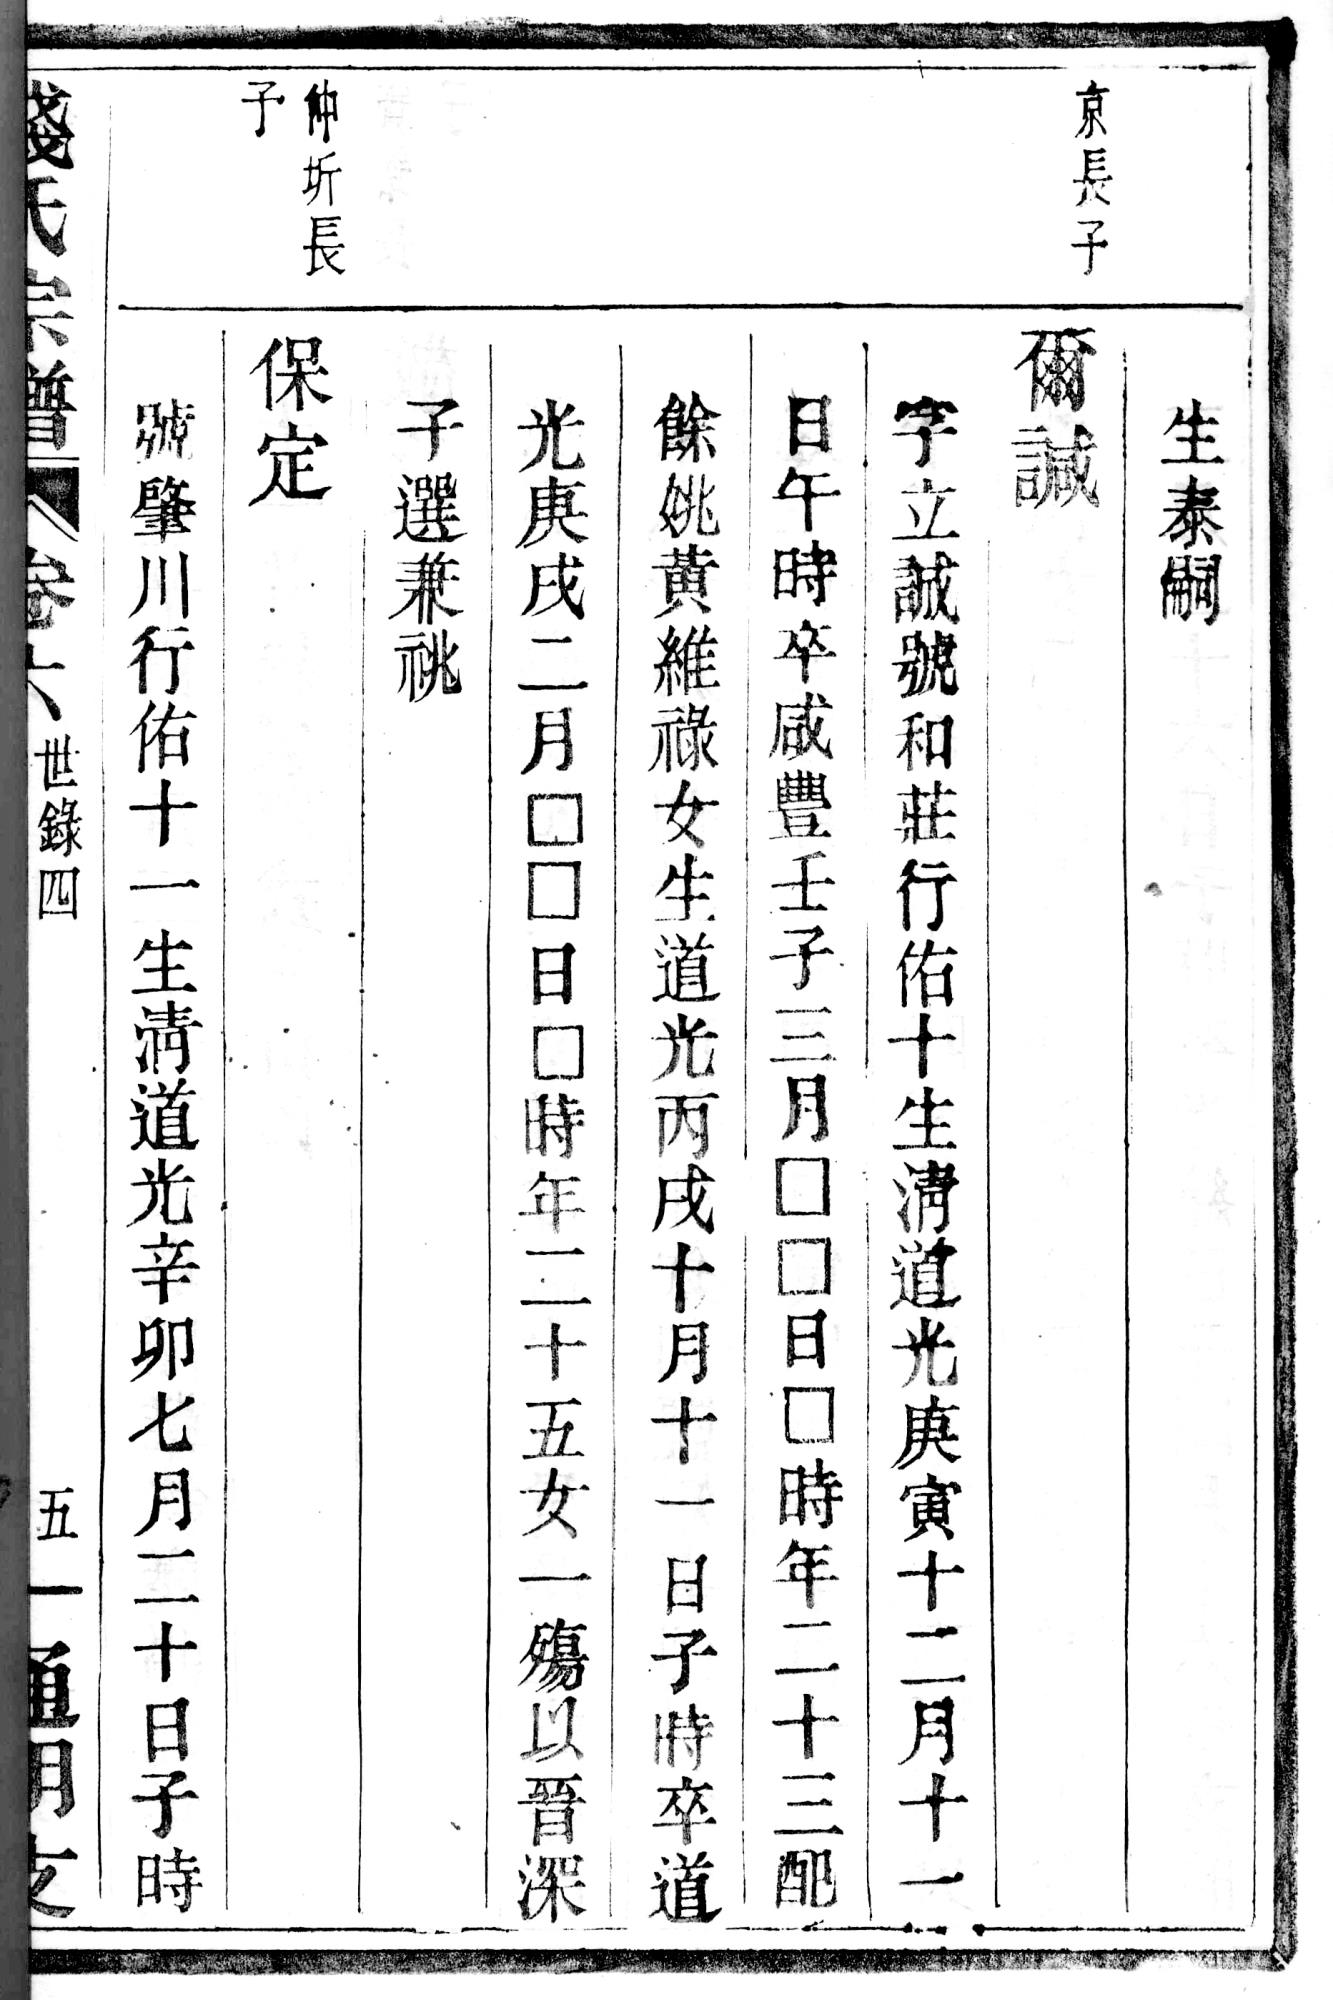 生泰嗣
京長子
爾諴
字立誠號和莊行佑十生淸道光庚寅十二月十一
日午時卒咸豐壬子三月□□日□時年二十三配
餘姚黃維祿女生道光丙戌十月十一日子時卒道
光庚戌二月□□日□時年二十五女一殤以晉深
子選兼祧
仲圻長
子
保定
號肇川行佑十一生淸道光辛卯七月二十日子時
錢氏宗譜 卷六 世錄四 五一 通明支